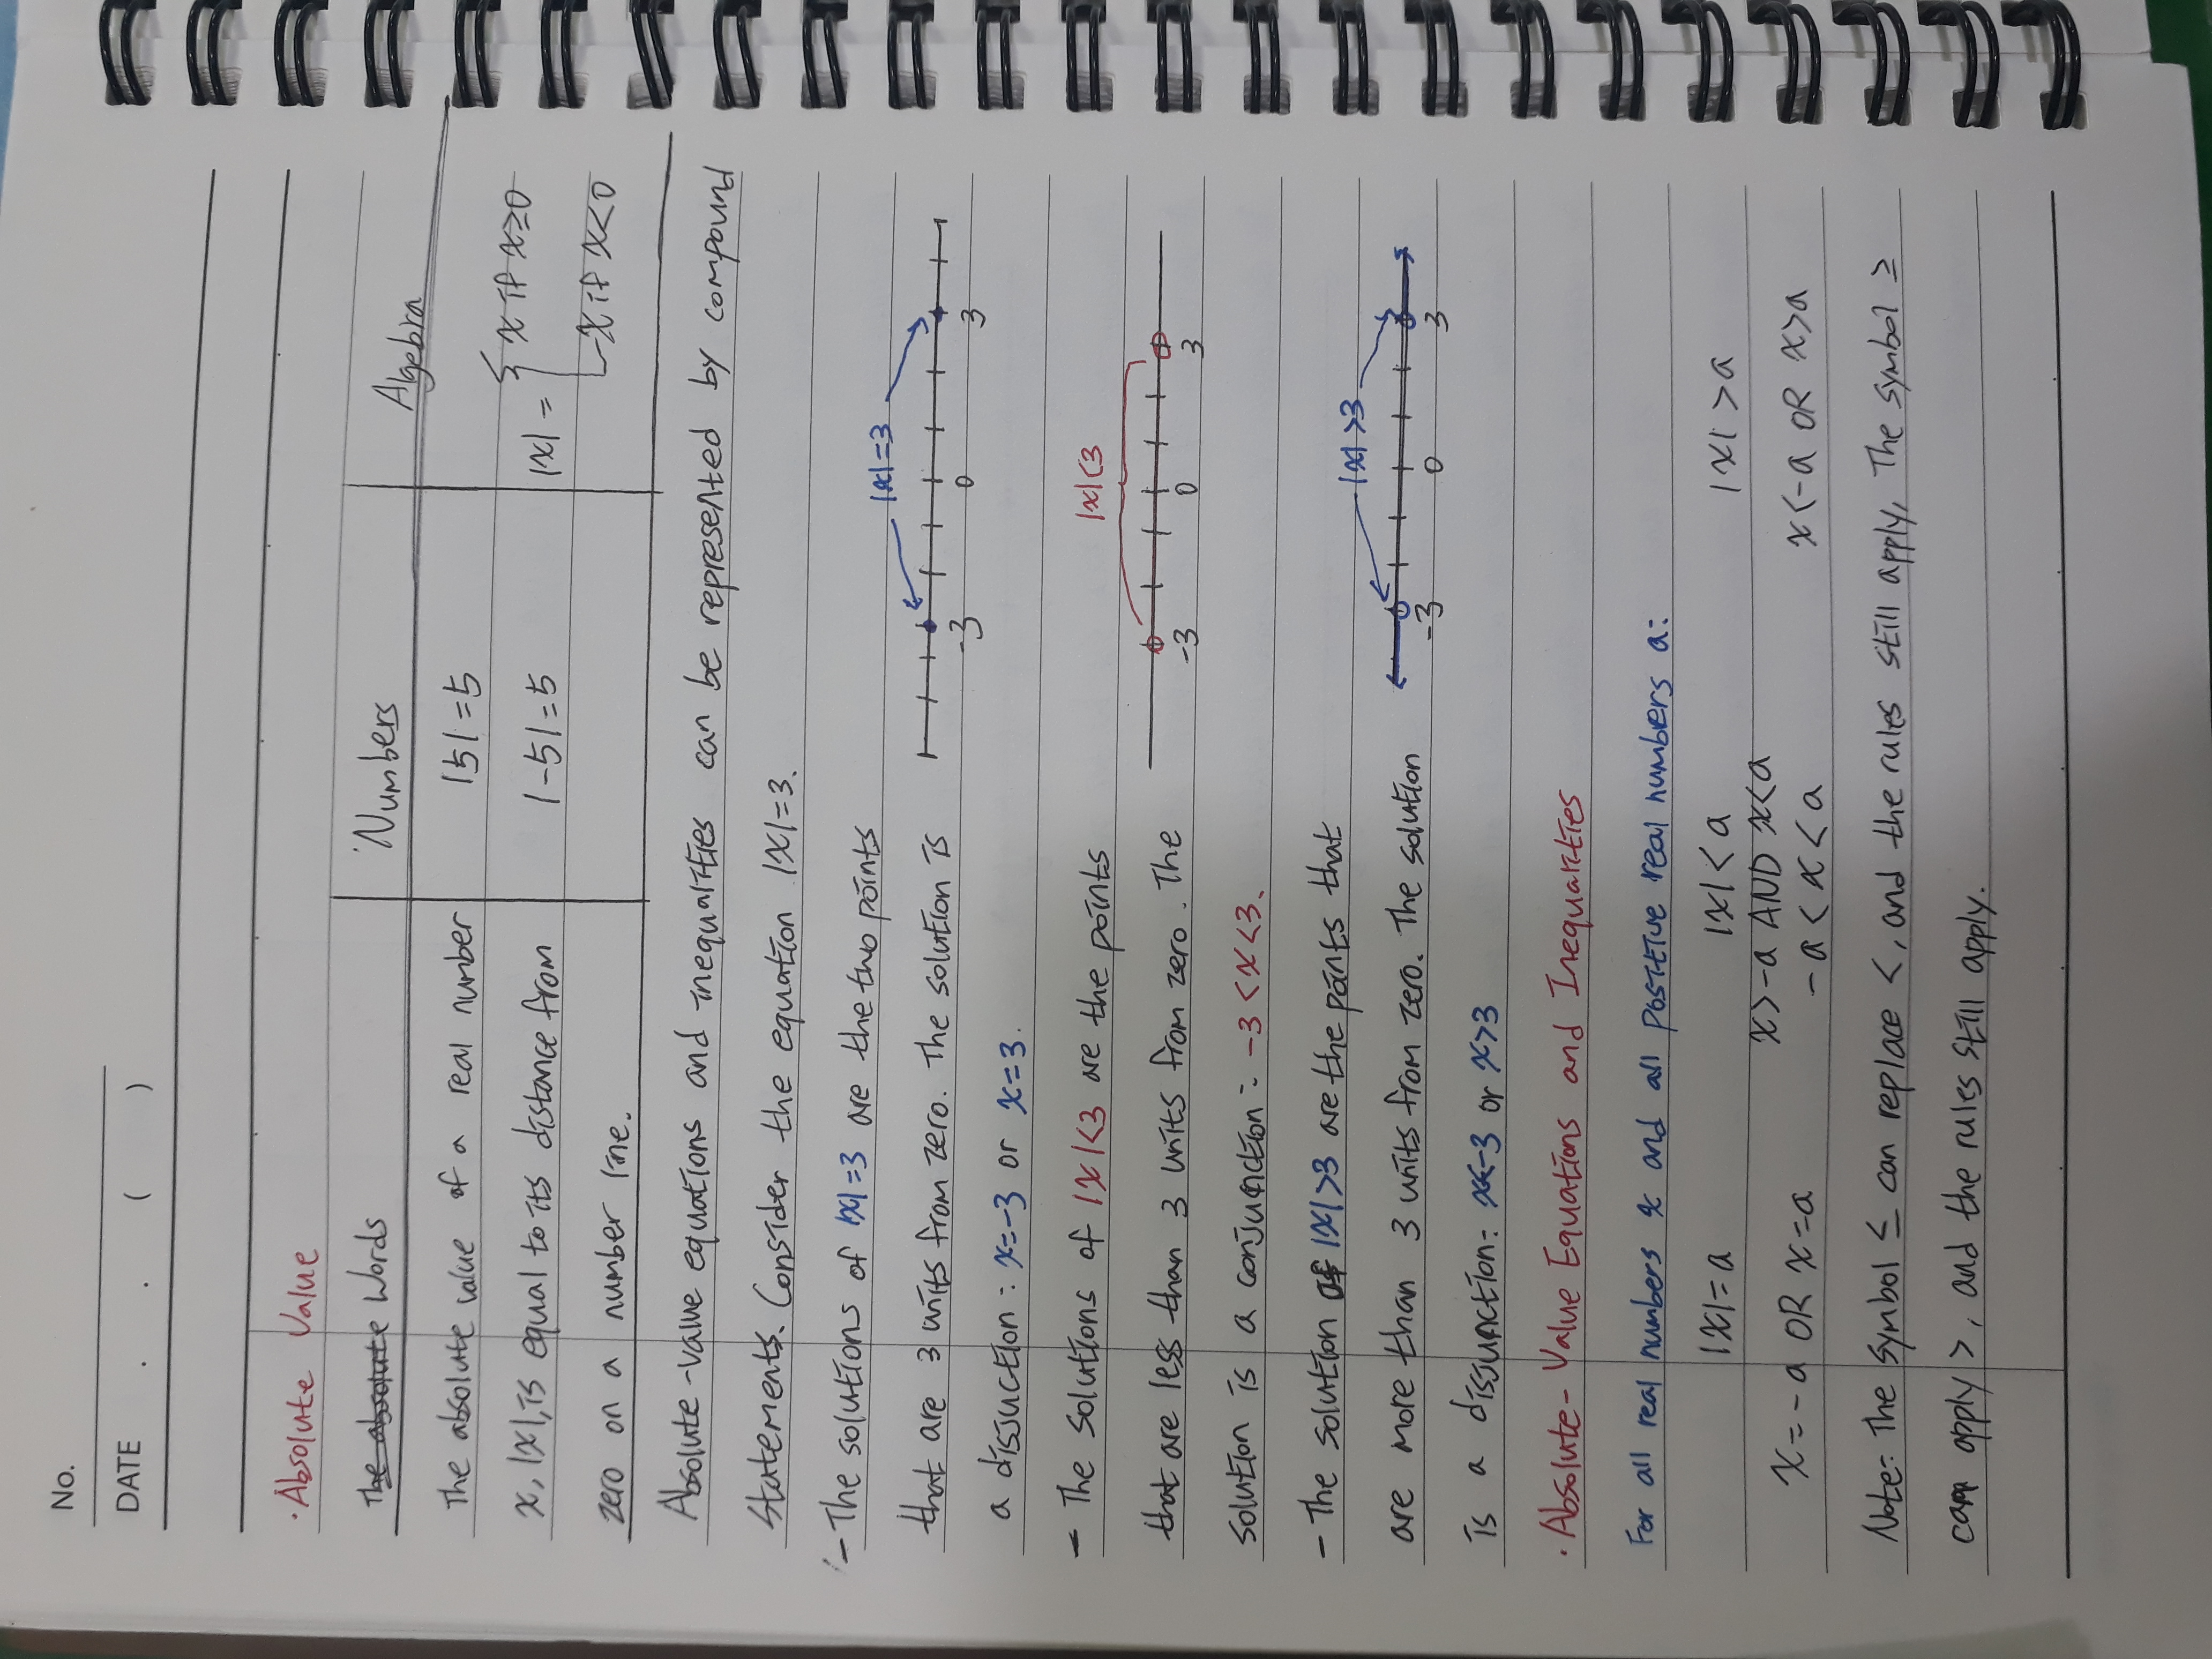 No.
DATE . . ( )
· Absolute Value
The absolute Words Numbers Algebra
The absolute value of a real number |5|=5
x, |x|, is equal to its distance from |-5|=5 |x| = { x if x≥0
zero on a number line. -x if x<0
Absolute-value equations and inequalities can be represented by compound
statements. Consider the equation |x|=3.
- The solutions of |x|=3 are the two points |x|=3
that are 3 units from zero. The solution is -3 0 3
a disjuction: x=-3 or x=3.
- The solutions of |x|<3 are the points |x|<3
that are less than 3 units from zero. The -3 0 3
solution is a conjunction: -3<x<3.
- The solution of |x|>3 are the points that |x|>3
are more than 3 units from zero. The solution -3 0 3
is a disjunction: x<-3 or x>3
· Absolute-Value Equations and Inequalities
For all real numbers x and all positive real numbers a:
|x|=a |x|<a |x|>a
x=-a OR x=a x>-a AND x<a x<-a OR x>a
-a<x<a
Note: The symbol ≤ can replace <, and the rules still apply. The symbol ≥
can apply >, and the rules still apply.